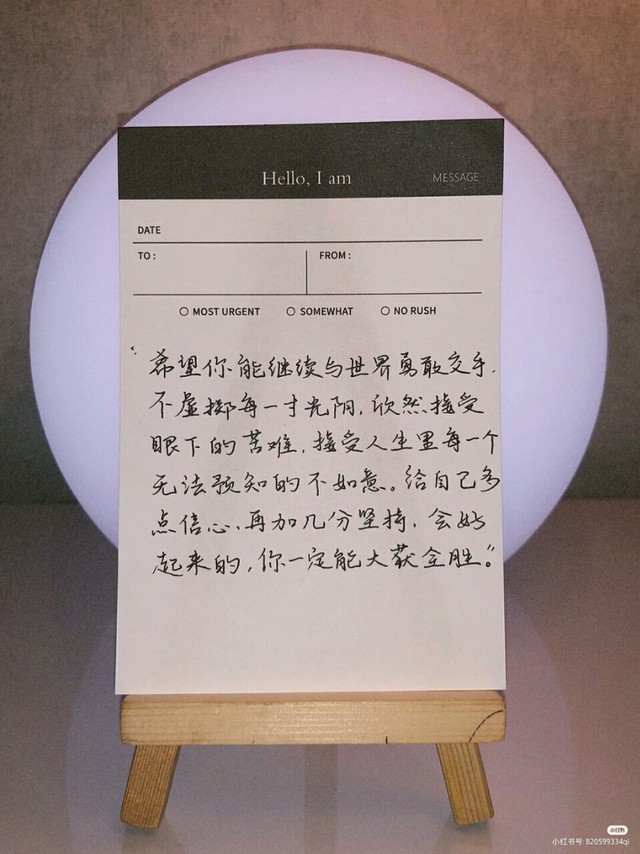 Hello, I am
MESSAGE
DATE
TO :
FROM :
MOST URGENT
SOMEWHAT
NO RUSH
“希望你能继续与世界勇敢交手.
不虚掷每一寸光阴,欣然接受
眼下的苦难,接受人生里每一个
无法预知的不如意。给自己多
点信心、再加几分坚持,会好
起来的,你一定能大获全胜。”
小红书
小红书号: 820599334qi